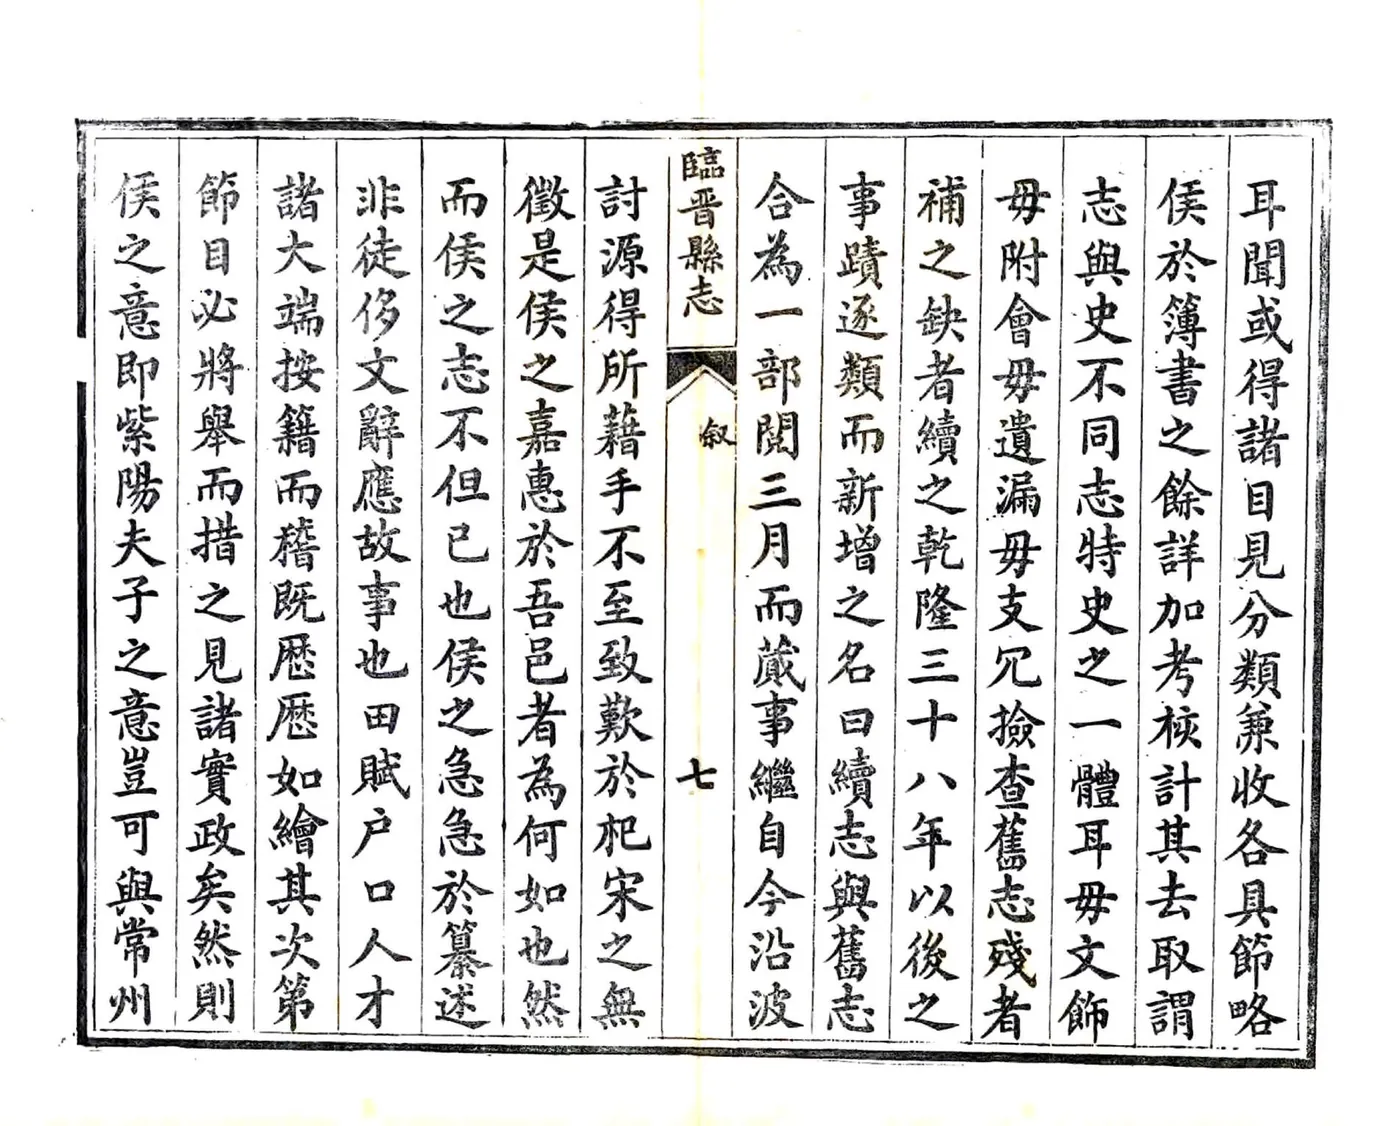 耳聞或得諸目見分類兼收各具節略
侯於簿書之餘詳加考核計其去取謂
志與史不同志特史之一體耳毋文飾
毋附會毋遺漏毋支冗撿查舊志殘者
補之缺者續之乾隆三十八年以後之
事蹟逐類而新增之名曰續志與舊志
合為一部閱三月而蕆事繼自今沿波
臨晉縣志
叙
七
討源得所藉手不至致歎於杞宋之無
徵是侯之嘉惠於吾邑者為何如也然
而侯之志不但已也侯之急急於纂述
非徒侈文辭應故事也田賦户口人才
諸大端按籍而稽既歷歷如繪其次第
節目必將舉而措之見諸實政矣然則
侯之意即紫陽夫子之意豈可與常州